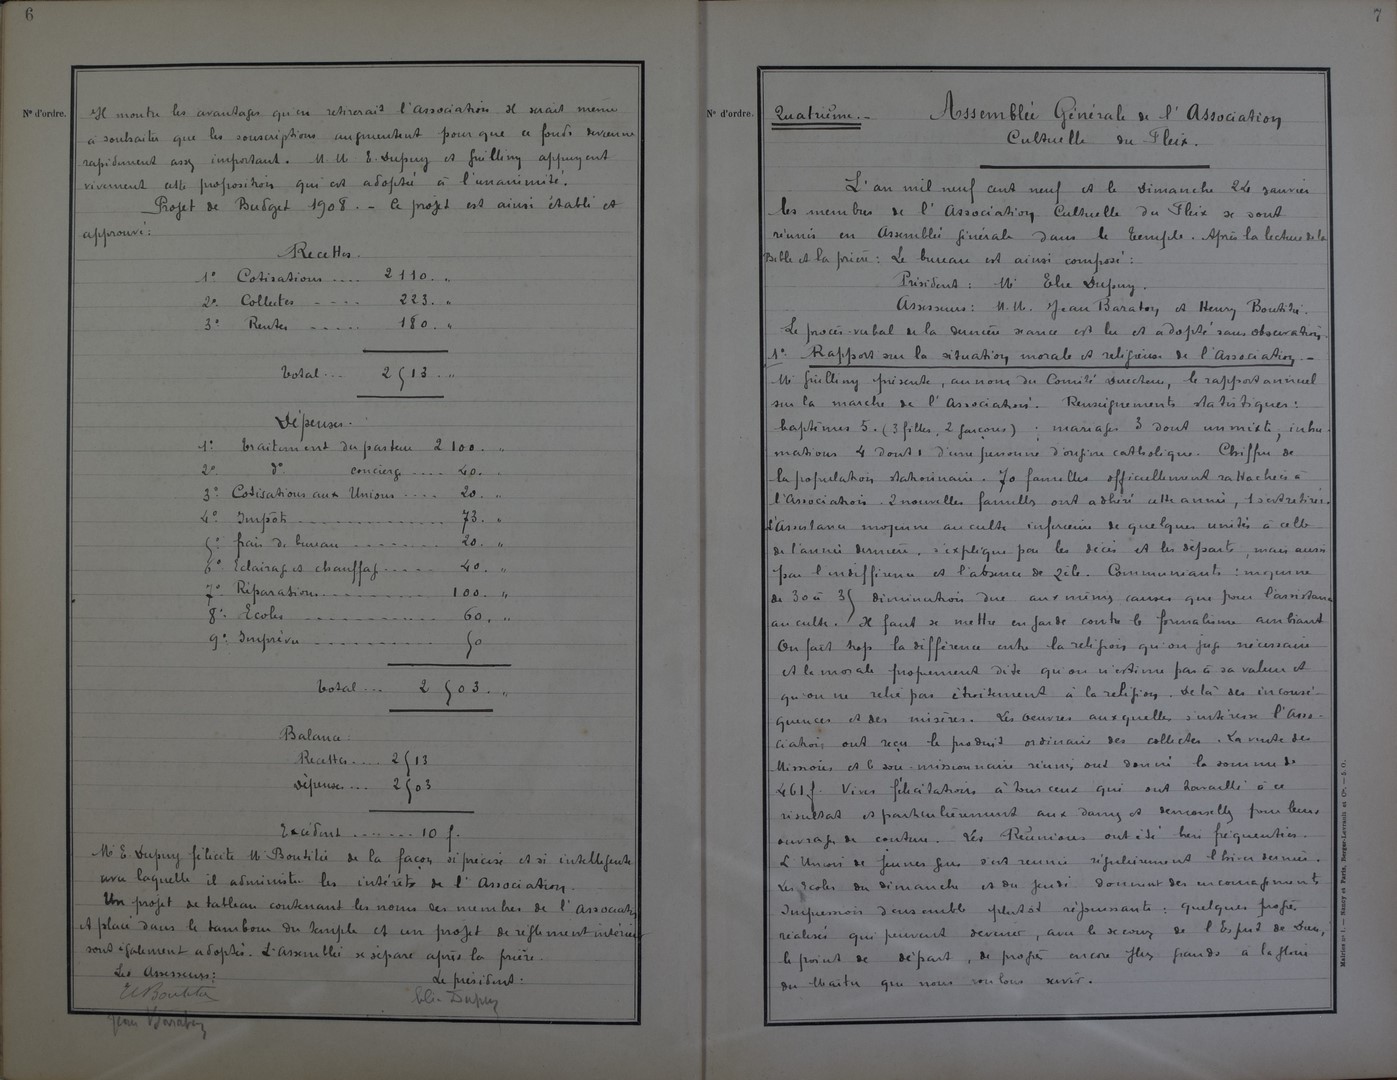 6
N° d'ordre.
Il montre les avantages qu'en retirerait l'Association. Il serait même
à souhaiter que les souscriptions augmentent pour que ce fonds devienne
rapidement assez important. M. M. E. Dupuy et Guilhiny appuyent
vivement cette proposition qui est adoptée à l'unanimité.
Projet de Budget 1908. - Ce projet est ainsi établi et
approuvé :
Recettes.
1° Cotisations .... 2110. "
2° Collectes .... 223. "
3° Rentes ..... 180. "
Total ... 2513. "
Dépenses.
1° Traitement du pasteur 2100. "
2° d° concierge .... 40. "
3° Cotisations aux Unions .... 20. "
4° Impôts ........ 73. "
5° frais de bureau ........ 20. "
6° Eclairage et chauffage ..... 40. "
7° Réparations ........ 100. "
8° Ecoles ........ 60. "
9° Imprévu ........ 50
Total ... 2503. "
Balance
Recettes .... 2513
Dépenses .... 2503
Excédent ...... 10 f.
Mr E. Dupuy félicite Mr Boutitie de la façon si précise et si intelligente
avec laquelle il administre les intérêts de l'Association.
Un projet de tableau contenant les noms des membres de l'Association
et placé dans le tambour du temple et un projet de règlement intérieur
sont également adoptés. L'Assemblée se sépare après la prière.
Les Assesseurs : Le président :
H Boutitie Elie Dupuy
Jean Baraton
7
N° d'ordre.
Quatrième. - Assemblée Générale de l'Association
Cultuelle du Fleix.
L'an mil neuf cent neuf et le Dimanche 24 janvier
les membres de l'Association Cultuelle du Fleix se sont
réunis en Assemblée générale dans le temple. Après la lecture de la
Bible et la prière : Le bureau est ainsi composé :
Président : Mr Elie Dupuy.
Assesseurs : M. M. Jean Baraton et Henry Boutitie.
Le procès-verbal de la dernière séance est lu et adopté sans observations.
1° Rapport sur la situation morale et religieuse de l'Association. -
Mr Guilhiny présente, au nom du Comité Directeur, le rapport annuel
sur la marche de l'Association. Renseignements statistiques :
baptêmes 5. (3 filles, 2 garçons) ; mariages 3 dont un mixte, inhu-
mations 4 dont 1 d'une personne d'origine catholique. Chiffre de
la population stationnaire. 70 familles officiellement rattachées à
l'Association. 2 nouvelles familles ont adhéré cette année, 1 s'est retirée.
L'Assistance moyenne au culte inférieure de quelques unités à celle
de l'année dernière, s'explique par les décès et les départs, mais aussi
par l'indifférence et l'absence de zèle. Communiants : moyenne
de 30 à 35 diminution due aux mêmes causes que pour l'assistance
au culte. Il faut se mettre en garde contre le formalisme ambiant
On fait trop la différence entre la religion qu'on juge nécessaire
et la morale proprement dite qu'on n'estime pas à sa valeur et
qu'on ne relie pas étroitement à la religion. De là des inconsé-
quences et des misères. Les oeuvres auxquelles s'intéresse l'Asso-
ciation ont reçu le produit ordinaire des collectes. La vente des
Missions et le sou missionnaire réunis ont donné la somme de
461 f. Vives félicitations à tous ceux qui ont travaillé à ce
résultat et particulièrement aux dames et demoiselles pour leurs
ouvrages de couture. Les Réunions ont été bien fréquentées.
L'Union de Jeunes gens s'est réunie régulièrement l'hiver dernier.
Les Ecoles du Dimanche et du Jeudi donnent des encouragements
Impression d'ensemble plutôt réjouissante : quelques progrès
réalisés qui peuvent devenir, avec le secours de l'Esprit de Dieu,
le point de départ, de progrès encore plus grands à la gloire
du Maître que nous voulons servir.